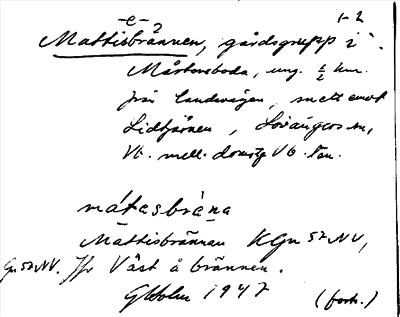 -e-? 1-2
Mattisbrännen, gårdsgrupp i
Mårtensboda, ung. ½ km.
från landsvägen, mitt emot
Lidtjärnen, Lövångers sn,
Vb. mell. domstg Vb. län.
mátasbrèna
Mattisbrännan KGn 57 NV,
Gn 57 NV. Jfr Väst å brännen.
GHolm 1947 (forts.)